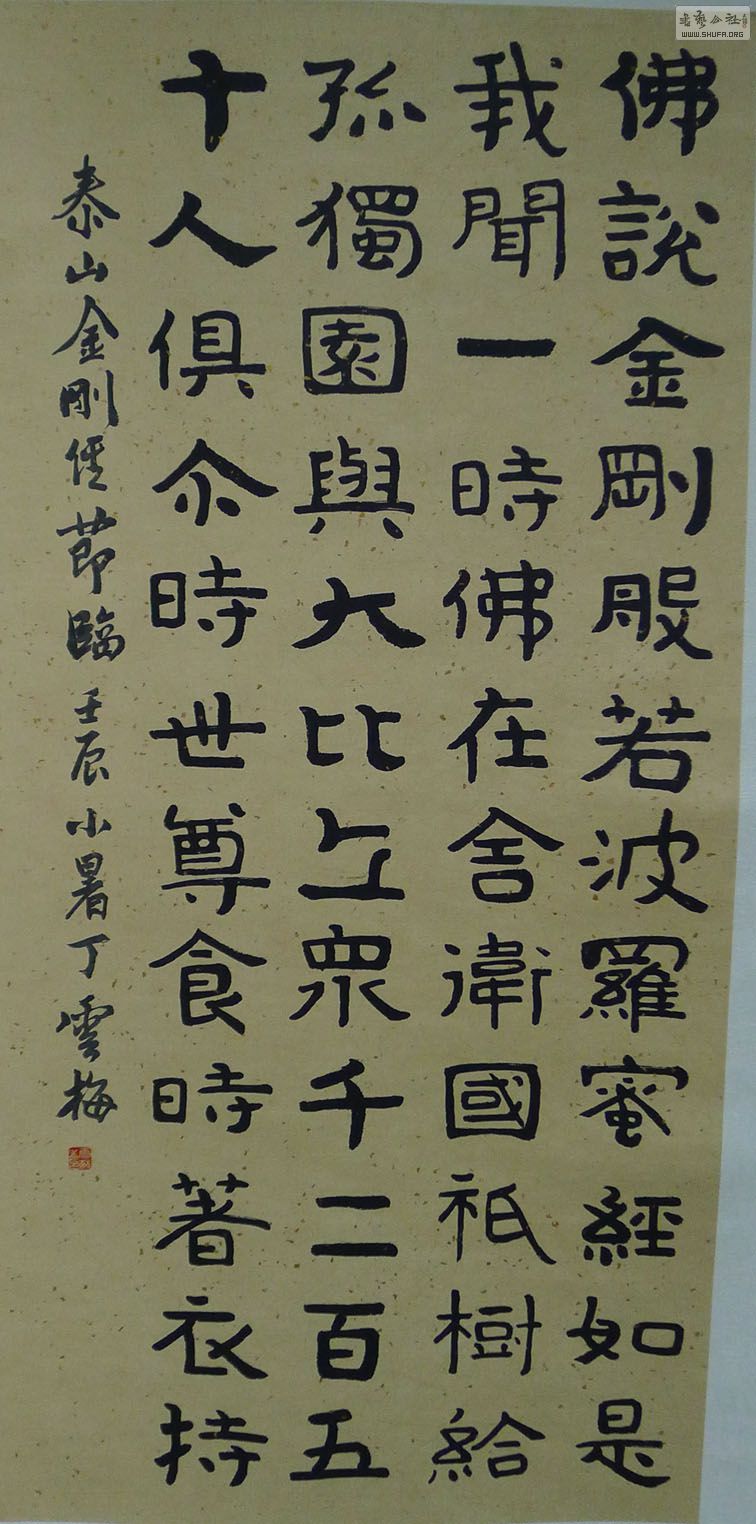 佛說金剛般若波羅蜜經如是
我聞一時佛在舍衛國祇樹給
孤獨園與大比丘眾千二百五
十人俱尒時世尊食時著衣持
泰山金剛经節臨 壬辰小暑丁雲梅
WWW.SHUFA.ORG